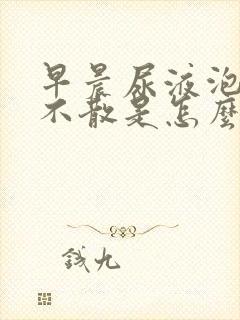 早晨尿液泡
不散是怎麼
錢九